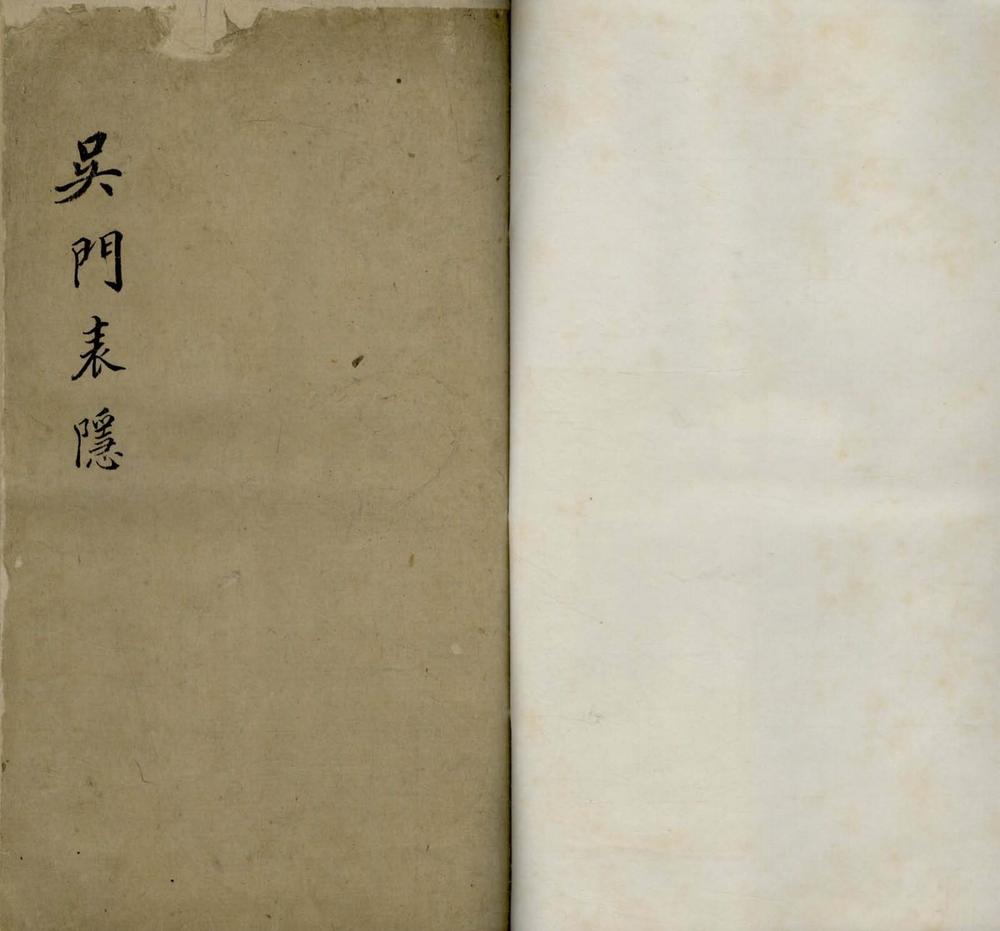 吳門表隱